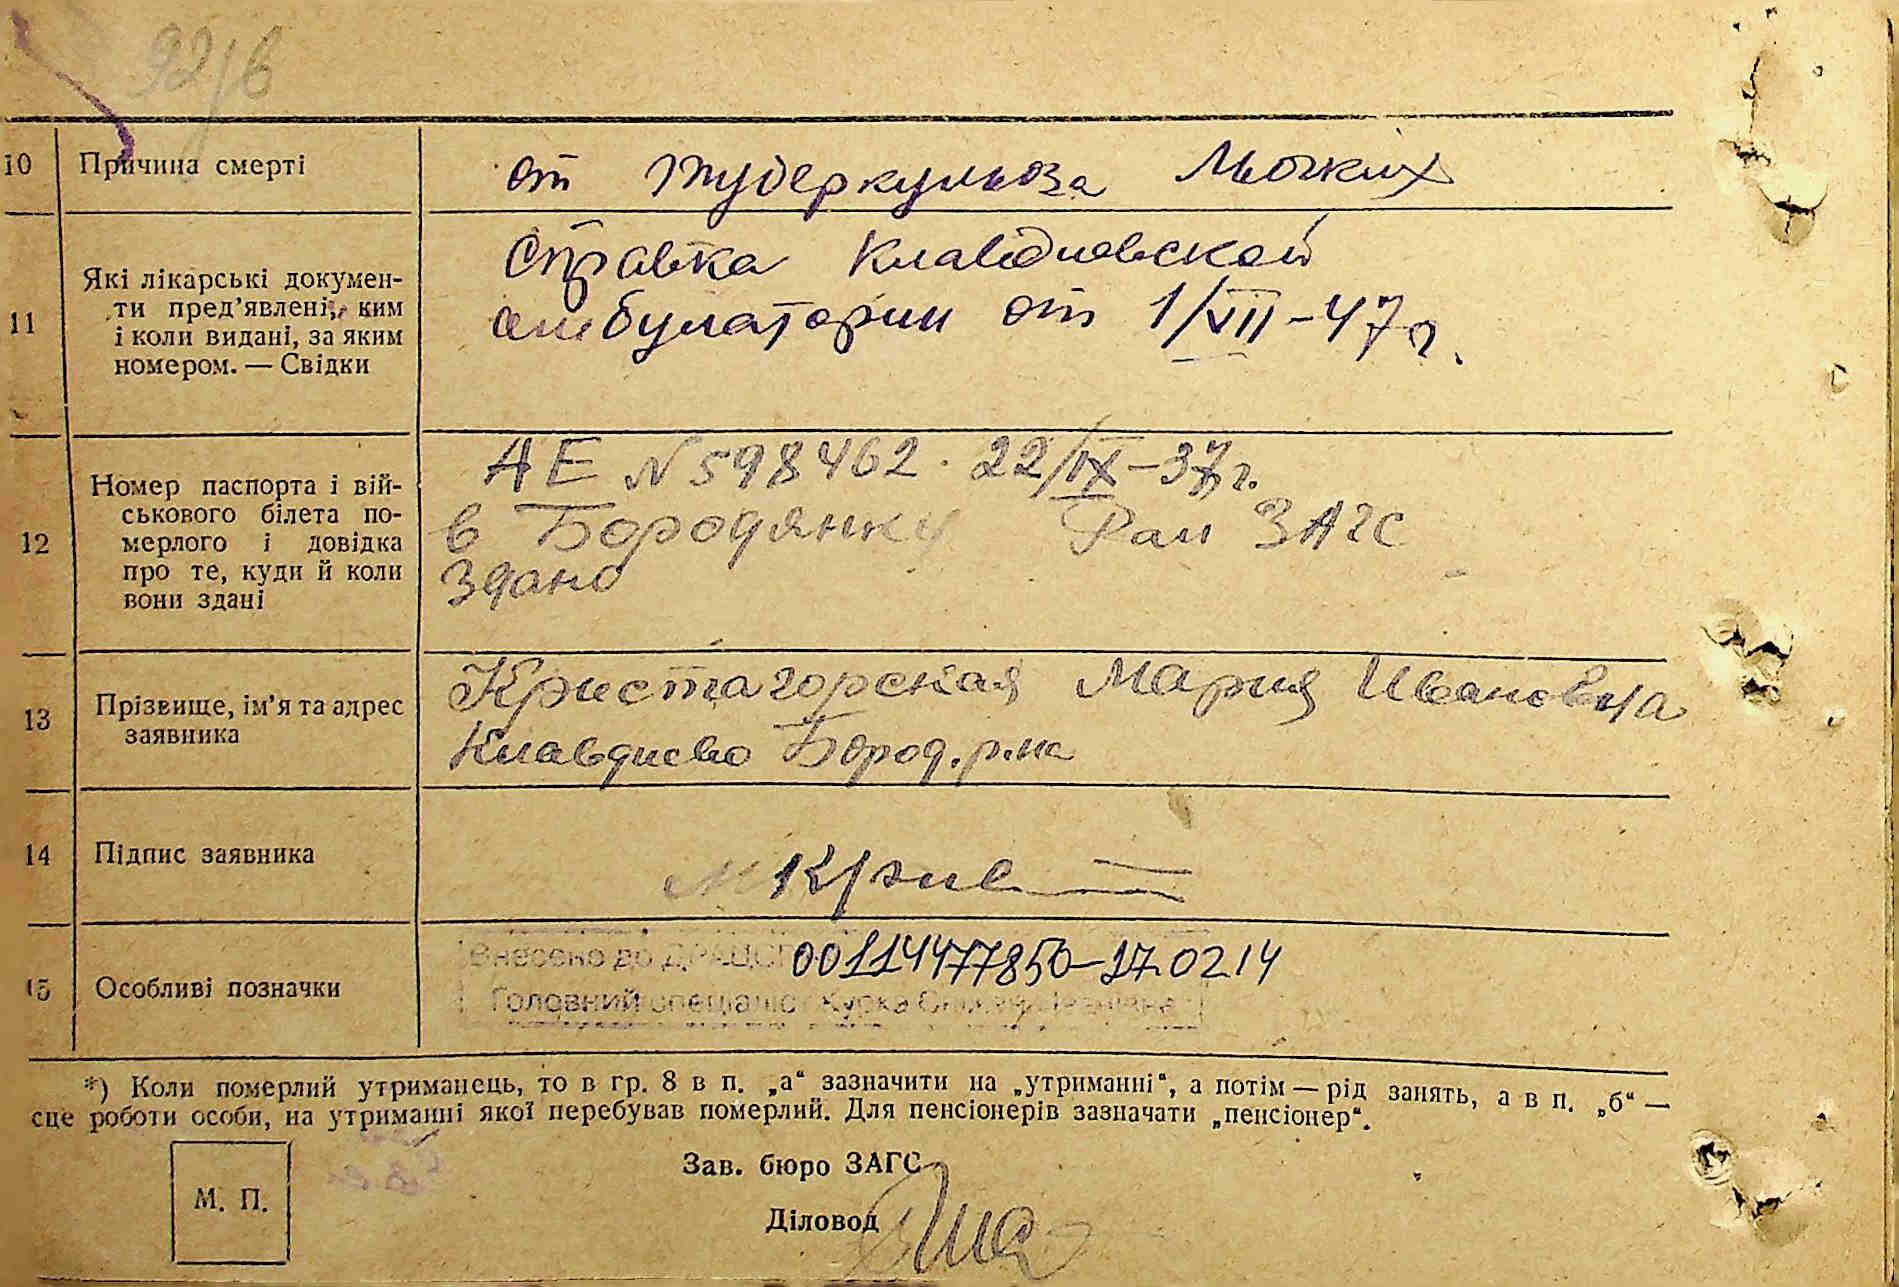 92/в
10 Причина смерти от туберкульоза Льогких
Справка Клавдиевской
11 Які лікарські докумен-
ти пред’явлені, ким амбулатории от 1/VII-47 г.
і коли видані, за яким
номером. — Свідки
АЕ N 598462. 22/IX-37г.
12 Номер паспорта і вій-
ськового білета по- в Бородянку Рай ЗАГС
мерлого і довідка
про те, куди й коли здано
вони здані
Кристагорская Мария Ивановна
13 Прізвище, ім’я та адрес
заявника Клавдиево Бород. р-на
14 Підпис заявника М Крис
Внесено до ДРАЦСГ 00114477850-17.02 14
15 Особливі позначки Головний спеціаліст Курка
*) Коли померлий утриманець, то в гр. 8 в п. „а“ зазначити на „утриманні“, а потім — рід занять, а в п. „б“ —
сце роботи особи, на утриманні якої перебував померлий. Для пенсіонерів зазначати „пенсіонер“.
Зав. бюро ЗАГС
М. П.
Діловод